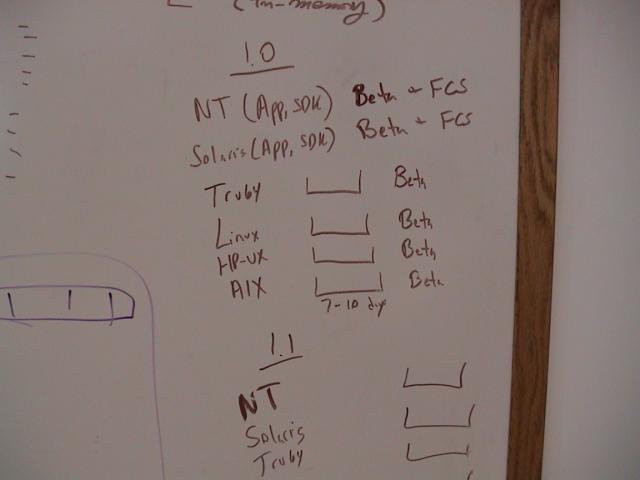 (In-memory)
1.0
NT (App, SDK) Beta + FCS
Solaris (App, SDK) Beta + FCS
Truby Beta
Linux Beta
HP-UX Beta
AIX Beta
7-10 days
1.1
NT
Solaris
Truby